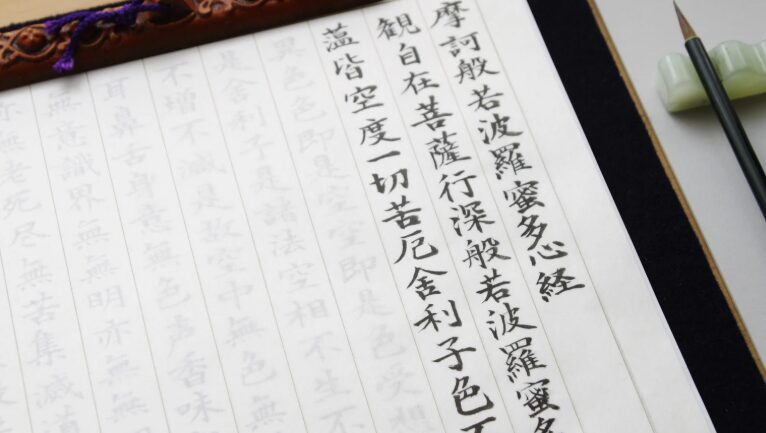 摩訶般若波羅蜜多心経
観自在菩薩行深般若波羅蜜多
薀皆空度一切苦厄舎利子色不
異色色即是空空即是色受想
是舎利子是諸法空相不生不
不増不減是故空中無色無
耳鼻舌身意無色声香味
無意識界無無明亦無無
亦無老死尽無苦集滅道